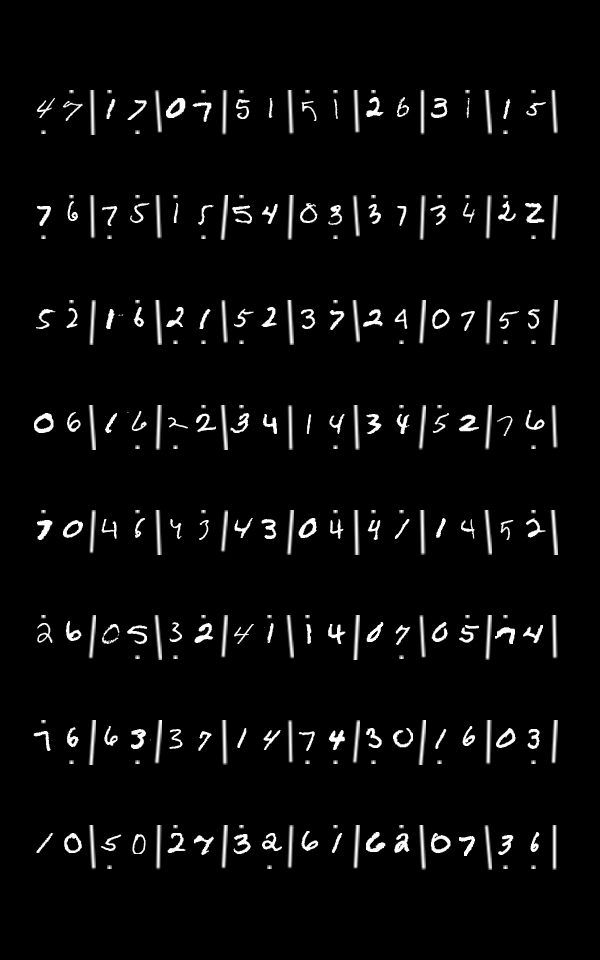 4 7 | 1 7 | 0 7 | 5 1 | 5 1 | 2 6 | 3 1 | 1 5 |
7 6 | 7 5 | 1 5 | 5 4 | 0 3 | 3 7 | 3 4 | 2 2 |
5 2 | 1 6 | 2 1 | 5 2 | 3 7 | 2 4 | 0 7 | 5 5 |
0 6 | 1 6 | 2 2 | 3 4 | 1 4 | 3 4 | 5 2 | 7 6 |
7 0 | 4 6 | 4 3 | 4 3 | 0 4 | 4 1 | 1 4 | 5 2 |
2 6 | 0 5 | 3 2 | 4 1 | 1 4 | 0 7 | 0 5 | 7 4 |
7 6 | 6 3 | 3 7 | 1 4 | 7 4 | 3 0 | 1 6 | 0 3 |
1 0 | 5 0 | 2 7 | 3 2 | 6 1 | 6 2 | 0 7 | 3 6 |